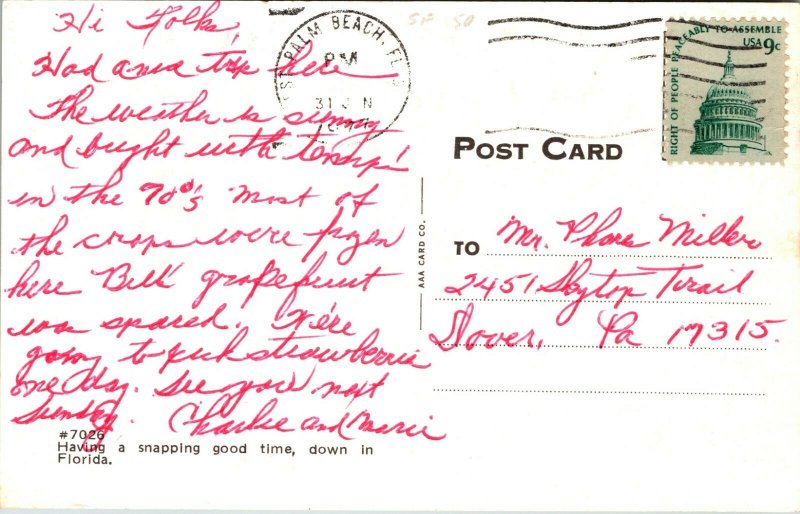 Hi Folks,
Had a nice trip here
The weather is sunny
and bright with temps
in the 70°s. Most of
the crops were frozen
here Bill's grapefruit
was spared. We're
going to pick strawberries
one day. See you next
Sunday. Charlie and Marie
#7026
Having a snapping good time, down in
Florida.
AAA CARD CO.
WEST PALM BEACH, FL
PM
31 J N
RIGHT OF PEOPLE PEACEABLY TO ASSEMBLE
USA 9c
POST CARD
TO Mr. Phares Miller
2451 Skytop Trail
Dover, Pa 17315.